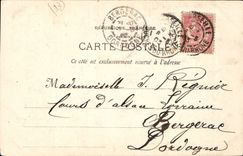 BERGERAC
CARTE POSTALE
Ce côté est exclusivement réservé à l'adresse
Mademoiselle J. Régnier
Cours d'Alsace Lorraine
Bergerac
Dordogne